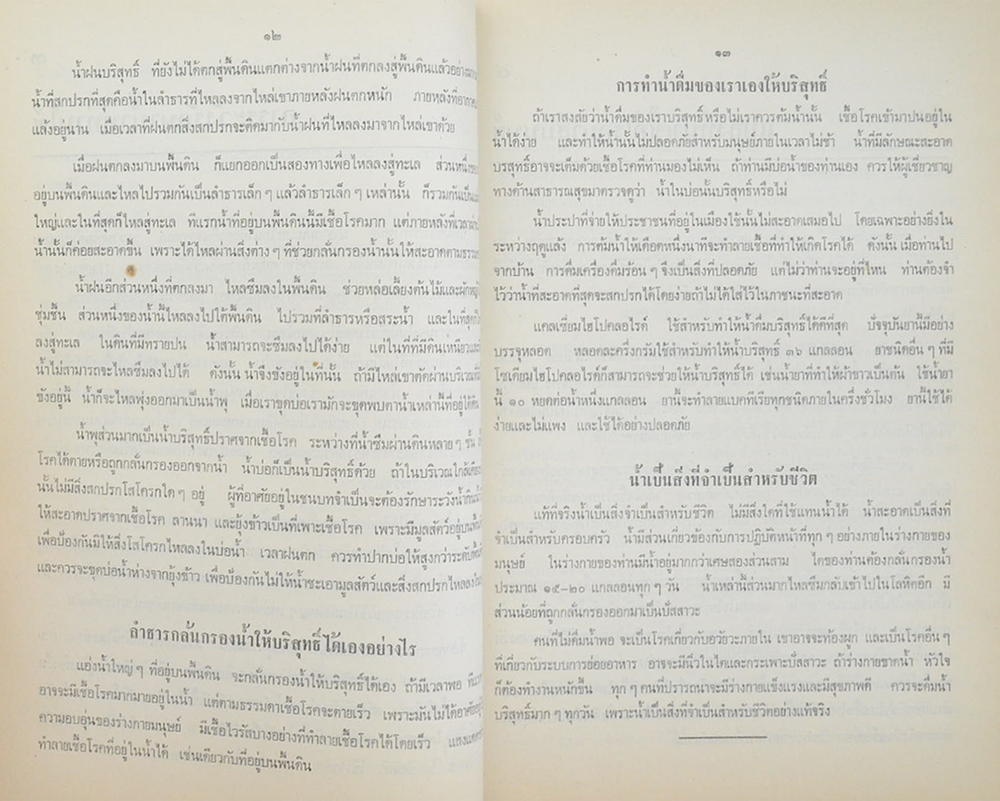 ๑๒
น้ำฝนบริสุทธิ์ ที่ยังไม่ได้ตกสู่พื้นดินแตกต่างจากน้ำฝนที่ตกลงสู่พื้นดินแล้วอย่าง
น้ำที่สกปรกที่สุดคือน้ำในลำธารที่ไหลลงจากไหล่เขาภายหลังฝนตกหนัก ภายหลังที่อากาศ
แล้งอยู่นาน เมื่อเวลาที่ฝนตกสิ่งสกปรกจะติดมากับน้ำฝนที่ไหลลงมาจากไหล่เขาด้วย
เมื่อฝนตกลงมาบนพื้นดิน ก็แยกออกเป็นสองทางเพื่อไหลลงสู่ทะเล ส่วนหนึ่ง
อยู่บนพื้นดินและไหลไปรวมกันเป็นลำธารเล็ก ๆ แล้วลำธารเล็ก ๆ เหล่านั้น ก็รวมกันเป็น
ใหญ่และในที่สุดก็ไหลสู่ทะเล ทีแรกน้ำที่อยู่บนพื้นดินนี้มีเชื้อโรคมาก แต่ภายหลังที่เวลา
น้ำนั้นก็ค่อยสะอาดขึ้น เพราะได้ไหลผ่านสิ่งต่าง ๆ ที่ช่วยกลั่นกรองน้ำนั้นให้สะอาดตาม
น้ำฝนอีกส่วนหนึ่งที่ตกลงมา ไหลซึมลงในพื้นดิน ช่วยหล่อเลี้ยงต้นไม้และผักหญ้า
ชุ่มชื้น ส่วนหนึ่งของน้ำนี้ไหลลงไปใต้พื้นดิน ไปรวมที่ลำธารหรือสระน้ำ และในที่สุด
ลงสู่ทะเล ในดินที่มีทรายปน น้ำสามารถจะซึมลงไปได้ง่าย แต่ในที่ที่มีดินเหนียว
น้ำไม่สามารถจะไหลซึมลงไปได้ ดังนั้น น้ำจึงขังอยู่ในที่นั้น ถ้ามีไหล่เขาตัดผ่านบริเวณ
ขังอยู่นี้ น้ำก็จะไหลพุ่งออกมาเป็นน้ำพุ เมื่อเราขุดบ่อเรามักจะขุดพบตาน้ำเหล่านี้ที่อยู่ใต้ดิน
น้ำพุส่วนมากเป็นน้ำบริสุทธิ์ปราศจากเชื้อโรค ระหว่างที่น้ำซึมผ่านดินหลาย ๆ ชั้น
โรคได้ตายหรือถูกกลั่นกรองออกจากน้ำ น้ำบ่อก็เป็นน้ำบริสุทธิ์ด้วย ถ้าในบริเวณใกล้เคียง
นั้นไม่มีสิ่งสกปรกโสโครกใด ๆ อยู่ ผู้ที่อาศัยอยู่ในชนบทจำเป็นจะต้องรักษาระวังน้ำกิน
ให้สะอาดปราศจากเชื้อโรค ลานนา และยุ้งข้าวเป็นที่เพาะเชื้อโรค เพราะมีมูลสัตว์อยู่บน
เพื่อป้องกันมิให้สิ่งโสโครกไหลลงในบ่อน้ำ เวลาฝนตก ควรทำปากบ่อให้สูงกว่าระดับ
และควรจะขุดบ่อน้ำห่างจากยุ้งข้าว เพื่อป้องกันไม่ให้น้ำชะเอามูลสัตว์และสิ่งสกปรกไหลลง
ลำธารกลั่นกรองน้ำให้บริสุทธิ์ได้เองอย่างไร
แอ่งน้ำใหญ่ ๆ ที่อยู่บนพื้นดิน จะกลั่นกรองน้ำให้บริสุทธิ์ได้เอง ถ้ามีเวลาพอ
อาจจะมีเชื้อโรคมากมายอยู่ในน้ำ แต่ตามธรรมดาเชื้อโรคจะตายเร็ว เพราะมันไม่ได้อาศัย
ความอบอุ่นของร่างกายมนุษย์ มีเชื้อไวรัสบางอย่างที่ทำลายเชื้อโรคได้โดยเร็ว แสงแดด
ทำลายเชื้อโรคที่อยู่ในน้ำได้ เช่นเดียวกับที่อยู่บนพื้นดิน
๑๓
การทำน้ำดื่มของเราเองให้บริสุทธิ์
ถ้าเราสงสัยว่าน้ำดื่มของเราบริสุทธิ์หรือไม่เราควรต้มน้ำนั้น เชื้อโรคเข้ามาปนอยู่ใน
น้ำได้ง่าย และทำให้น้ำนั้นไม่ปลอดภัยสำหรับมนุษย์ภายในเวลาไม่ช้า น้ำที่มีลักษณะสะอาด
บริสุทธิ์อาจจะเต็มด้วยเชื้อโรคที่ท่านมองไม่เห็น ถ้าท่านมีบ่อน้ำของท่านเอง ควรให้ผู้เชี่ยวชาญ
ทางด้านสาธารณสุขมาตรวจดูว่า น้ำในบ่อนั้นบริสุทธิ์หรือไม่
น้ำประปาที่จ่ายให้ประชาชนที่อยู่ในเมืองใช้นั้นไม่สะอาดเสมอไป โดยเฉพาะอย่างยิ่งใน
ระหว่างฤดูแล้ง การต้มน้ำให้เดือดหนึ่งนาทีจะทำลายเชื้อที่ทำให้เกิดโรคได้ ดังนั้น เมื่อท่านไป
จากบ้าน การดื่มเครื่องดื่มร้อน ๆ จึงเป็นสิ่งที่ปลอดภัย แต่ไม่ว่าท่านจะอยู่ที่ไหน ท่านต้องจำ
ไว้ว่าน้ำที่สะอาดที่สุดจะสกปรกได้โดยง่ายถ้าไม่ได้ใส่ไว้ในภาชนะที่สะอาด
แคลเซี่ยมไฮโปคลอไรด์ ใช้สำหรับทำให้น้ำดื่มบริสุทธิ์ได้ดีที่สุด ปัจจุบันยานี้มีอย่าง
บรรจุหลอด หลอดละครึ่งกรัมใช้สำหรับทำให้น้ำบริสุทธิ์ ๓๖ แกลลอน ยาชนิดอื่น ๆ ที่มี
โซเดียมไฮโปคลอไรด์ก็สามารถจะช่วยให้น้ำบริสุทธิ์ได้ เช่นน้ำยาที่ทำให้ผ้าขาวเป็นต้น ใช้น้ำยา
นี้ ๑๐ หยดต่อน้ำหนึ่งแกลลอน ยานี้จะทำลายแบคทีเรียทุกชนิดภายในครึ่งชั่วโมง ยานี้ใช้ได้
ง่ายและไม่แพง และใช้ได้อย่างปลอดภัย
น้ำเป็นสิ่งที่จำเป็นสำหรับชีวิต
แท้ที่จริงน้ำเป็นสิ่งจำเป็นสำหรับชีวิต ไม่มีสิ่งใดที่ใช้แทนน้ำได้ น้ำสะอาดเป็นสิ่งที่
จำเป็นสำหรับครอบครัว น้ำมีส่วนเกี่ยวข้องกับการปฏิบัติหน้าที่ทุก ๆ อย่างภายในร่างกายของ
มนุษย์ ในร่างกายของท่านมีน้ำอยู่มากกว่าเศษสองส่วนสาม ไตของท่านต้องกลั่นกรองน้ำ
ประมาณ ๑๕–๒๐ แกลลอนทุก ๆ วัน น้ำเหล่านี้ส่วนมากไหลซึมกลับเข้าไปในโลหิตอีก มี
ส่วนน้อยที่ถูกกลั่นกรองออกมาเป็นปัสสาวะ
คนที่ไม่ดื่มน้ำพอ จะเป็นโรคเกี่ยวกับอวัยวะภายใน เขาอาจจะท้องผูก และเป็นโรคอื่น ๆ
ที่เกี่ยวกับระบบการย่อยอาหาร อาจจะมีนิ่วในไตและกระเพาะปัสสาวะ ถ้าร่างกายขาดน้ำ หัวใจ
ก็ต้องทำงานหนักขึ้น ทุก ๆ คนที่ปรารถนาจะมีร่างกายแข็งแรงและมีสุขภาพดี ควรจะดื่มน้ำ
บริสุทธิ์มาก ๆ ทุกวัน เพราะน้ำเป็นสิ่งที่จำเป็นสำหรับชีวิตอย่างแท้จริง